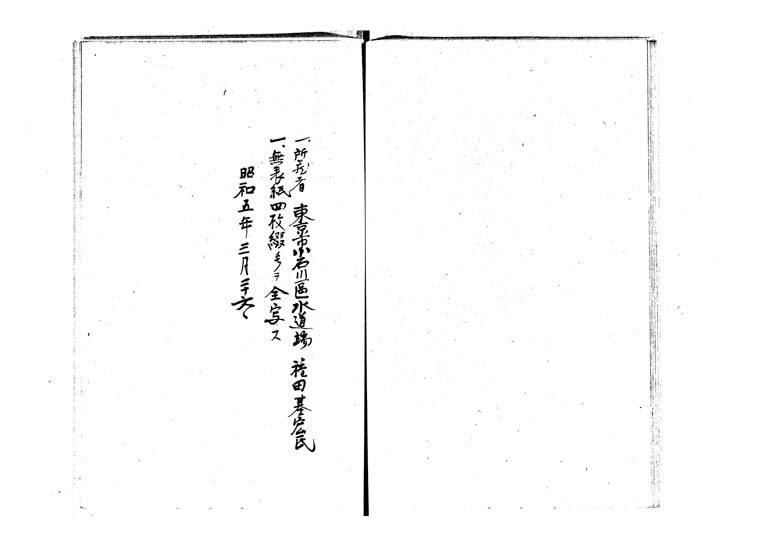 一、所蔵者 東京市小石川區水道端 種田基宏氏
一、無表紙四枚綴 全写ス
昭和五年三月